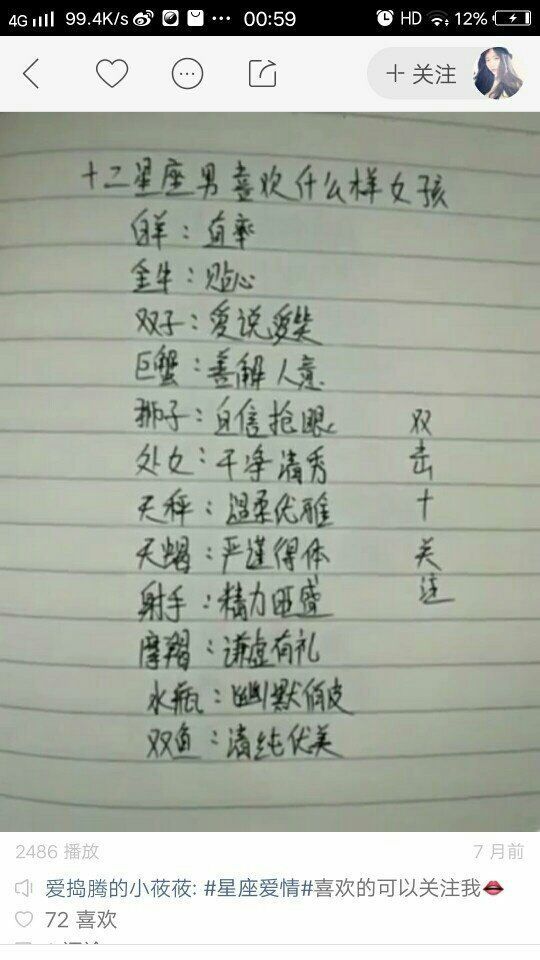 4G 99.4K/s ··· 00:59 HD 12%
+ 关注
十二星座男喜欢什么样女孩
白羊：直率
金牛：贴心
双子：爱说爱笑
巨蟹：善解人意
狮子：自信抢眼
处女：干净清秀
天秤：温柔优雅
天蝎：严谨得体
射手：精力旺盛
摩羯：谦虚有礼
水瓶：幽默俏皮
双鱼：清纯优美
双击十关注
2486 播放
7 月前
爱捣腾的小莜莜: #星座爱情#喜欢的可以关注我
72 喜欢